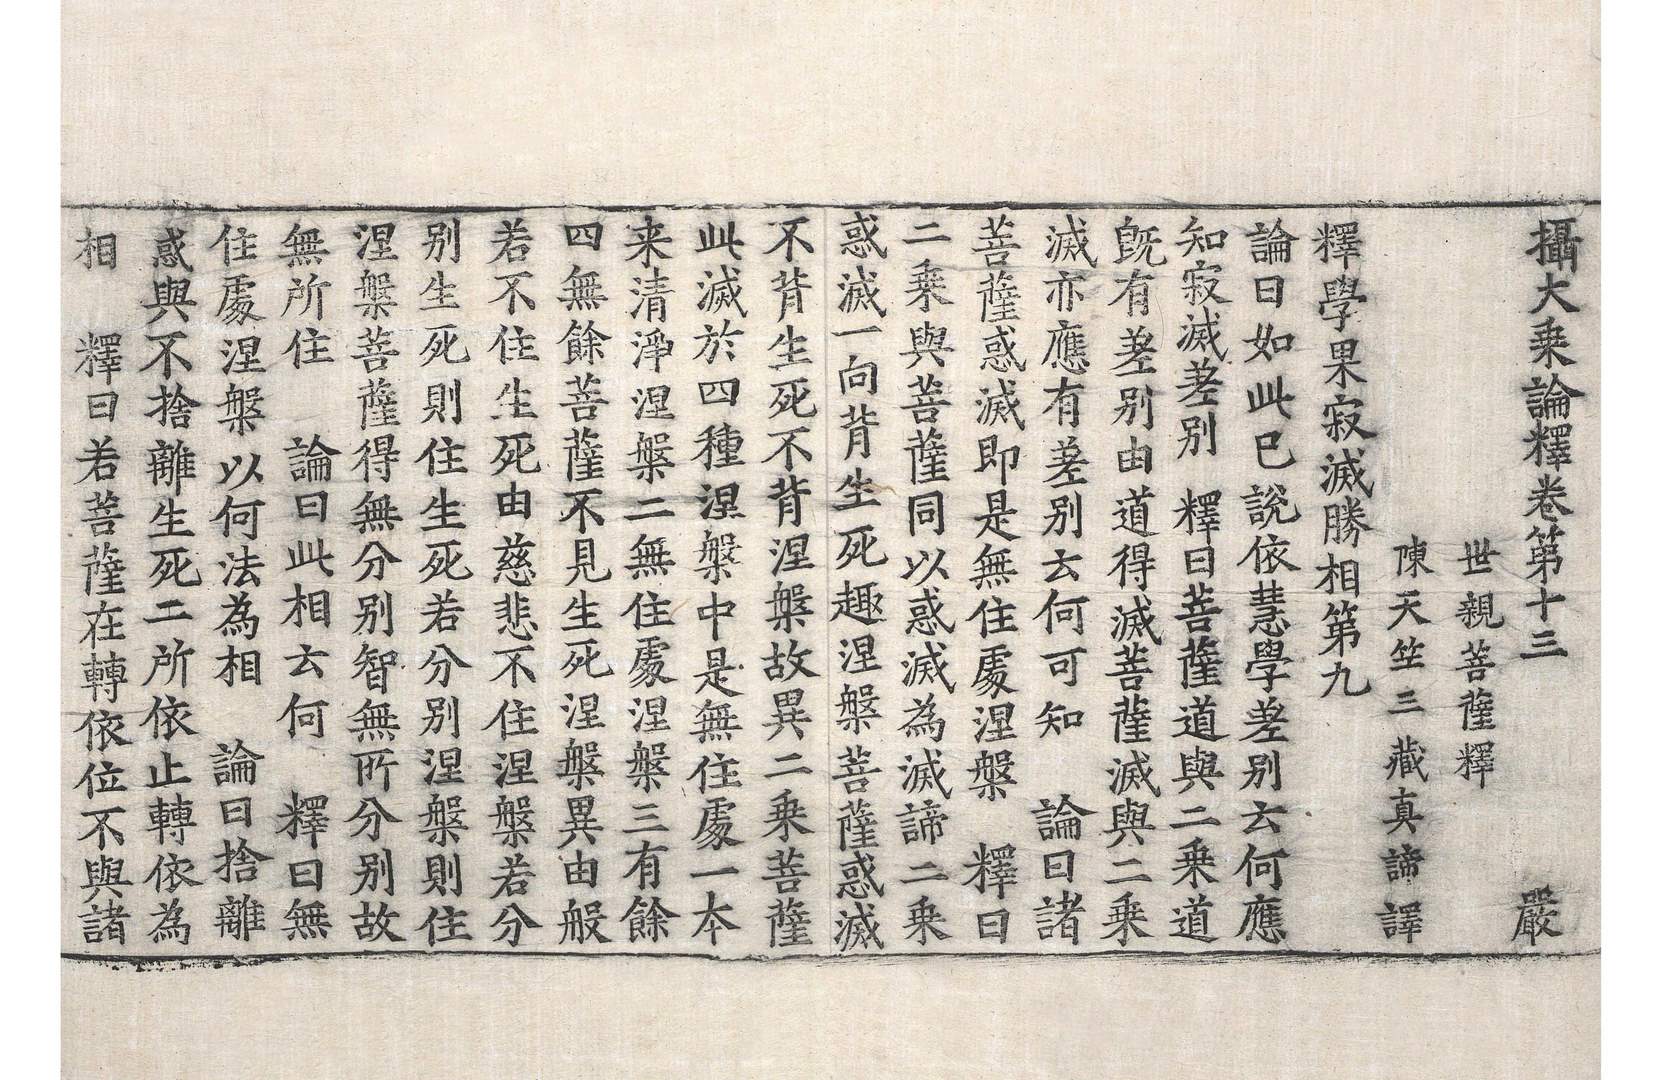 攝大乗論釋卷第十三 嚴
世親菩薩釋
陳天竺三藏真諦譯
釋學果寂滅勝相第九
論曰如此已說依慧學差别云何應
知寂滅差别 釋曰菩薩道與二乗道
旣有差别由道得滅菩薩滅與二乗
滅亦應有差别云何可知 論曰諸
菩薩惑滅即是無住處涅槃 釋曰
二乗與菩薩同以惑滅為滅諦二乗
惑滅一向背生死趣涅槃菩薩惑滅
不背生死不背涅槃故異二乗菩薩
此滅於四種涅槃中是無住處一本
来清淨涅槃二無住處涅槃三有餘
四無餘菩薩不見生死涅槃異由般
若不住生死由慈悲不住涅槃若分
别生死則住生死若分别涅槃則住
涅槃菩薩得無分别智無所分别故
無所住 論曰此相云何 釋曰無
住處涅槃以何法為相 論曰捨離
惑與不捨離生死二所依止轉依為
相 釋曰若菩薩在轉依位不與諸